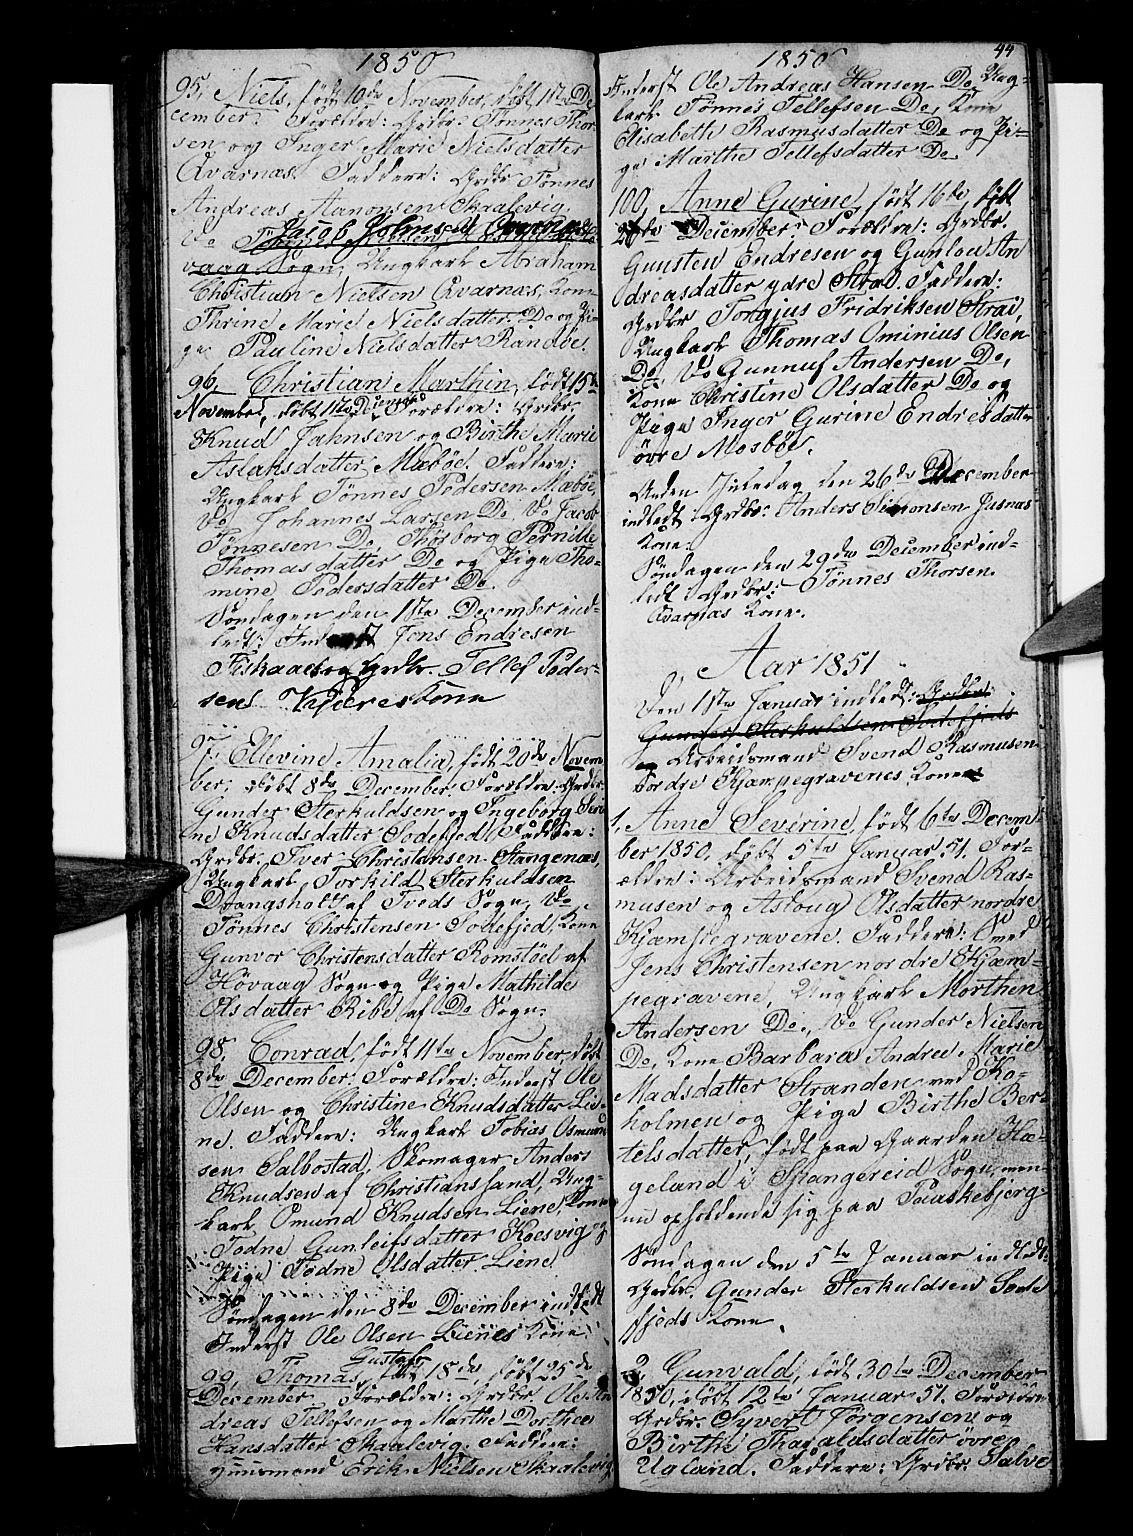 1850
95, Niels, født 10de November, døbt 1ste De
cember. Forældre: Grdbr Tønnes Thor
sen og Inger Marie Nielsdatter
Qvarnæs. Faddere: Grdbr Tønnes
Andreas Aanonsen Skaalevig,
Do Jacob Johnsen
vaag Sogn, Ungkarl Abraham
Christian Nielsen Qvarnæs, Kone
Thrine Marie Nielsdatter Do og Pi
ge Pauline Nielsdatter Randøe.
96, Christian Marthin, født 15de
November, døbt 1ste December Forældre: Grdbr.
Knud Jahnsen og Birthe Marie
Aslaksdatter Mæbøe. Faddere:
Ungkarl Tønnes Pedersen Mæbøe,
Do Johannes Larsen Do, Do Jacob
Tønnesen Do, Thøsborg Pernille
Thomasdatter Do og Pige Tho-
mine Pedersdatter Do
Søndagen den 1ste December ind-
ledt: Inderst Jens Endresen
Fiskaaes og Grdbr. Tellef Peder-
sen Kjæres Kone
97, Ellevine Amalia, født 20de Novem
ber, døbt 8de December. Forældre: Grdbr.
Gunder Sterkuldsen og Ingeborg Seri
ne Knudsdatter Sodefjed. Faddere:
Grdbr. Iver Christensen Stangenæs,
Ungkarl Torkild Sterkuldsen
Drangsholt af Tveds Sogn, Do
Tønnes Christensen Sodefjed, Kone
Gunvor Christensdatter Romstøl af
Høvaag Sogn og Pige Mathilde
Olsdatter Ribe af Do Sogn.
98, Conrad, født 11te November, døbt
8de December. Forældre: Inderst Ole
Olsen og Christine Knudsdatter Lie-
ne. Faddere: Ungkarl Tobias Osmund
sen Salbostad, Skomager Anders
Knudsen af Christianssand, Ung-
karl Omund Knudsen Liene, Kone
Todne Gunleifsdatter Koesvig og
Pige Todne Olsdatter Liene
Søndagen den 8de December indledt
Inderst Ole Olsen Lienes Kone.
Gustaf
99, Thomas, født 18de, døbt 25de
December Forældre: Grdbr Ole An
dreas Tellefsen og Marthe Dorthea
Hansdatter Skaalevig. Faddere:
Huusmand Erik Nielsen Skaalevig
1850
44
Inderst Ole Andreas Hansen Do, Ung-
karl Tønnes Tellefsen Do, Kone
Elisabeth Rasmusdatter Do og Pi-
ge Marthe Tellefsdatter Do.
100, Anne Gurine, født 16de, døbt
26de December Forældre: Grdbr.
Gunsten Endresen og Gunlou An
dreasdatter ydre Strai. Faddere:
Grdbr Torgjus Fridriksen Strai,
Ungkarl Thomas Ominius Olsen
Do, Do Gunnuf Andersen Do,
Kone Christine Olsdatter Do og
Pige Inger Gurine Endresdatter
øvre Mosbøe.
Anden Juledag den 26de December
indledt: Grdbr: Anders Simonsen Jusnæs
Kone.
Søndagen den 29de December ind-
ledt: Grdbr: Tønnes Thorsen
Qvarnæs Kone.
Aar 1851
Den 1ste Januar indledt: Grdbr.
Gunder Sterkuldsen Sodefjeds
og Arbeidsmand Svend Rasmusen
Nordre Kjæmpegravenes Kone
1, Anne Severine, født 6te Decem
ber 1850, døbt 5te Januar 51. For-
ældre: Arbeidsmand Svend Ras-
musen og Asloug Olsdatter nordre
Kjæmpegravene. Faddere: Smed
Jens Christensen nordre Kjæm-
pegravene, Ungkarl Morthen
Andersen Do., Do Gunder Nielsen
Do, Kone Barbara Andrea Marie
Madsdatter Stranden ved Ko-
holmen og Pige Birthe Ber-
telsdatter, født paa Gaarden Hæ-
geland i Spangereid Sogn, men
nu opholdende sig paa Pauskebjerg
Søndagen den 5te Januar indledt:
Grdbr. Gunder Sterkuldsen Sode
fjeds Kone.
2, Gunvald, født 30te December
1850, døbt 12te Januar 51. Forældre:
Grdbr. Syvert Jørgensen og
Birthe Tharaldsdatter øvre
Ugland. Faddere: Grdbr. Salve